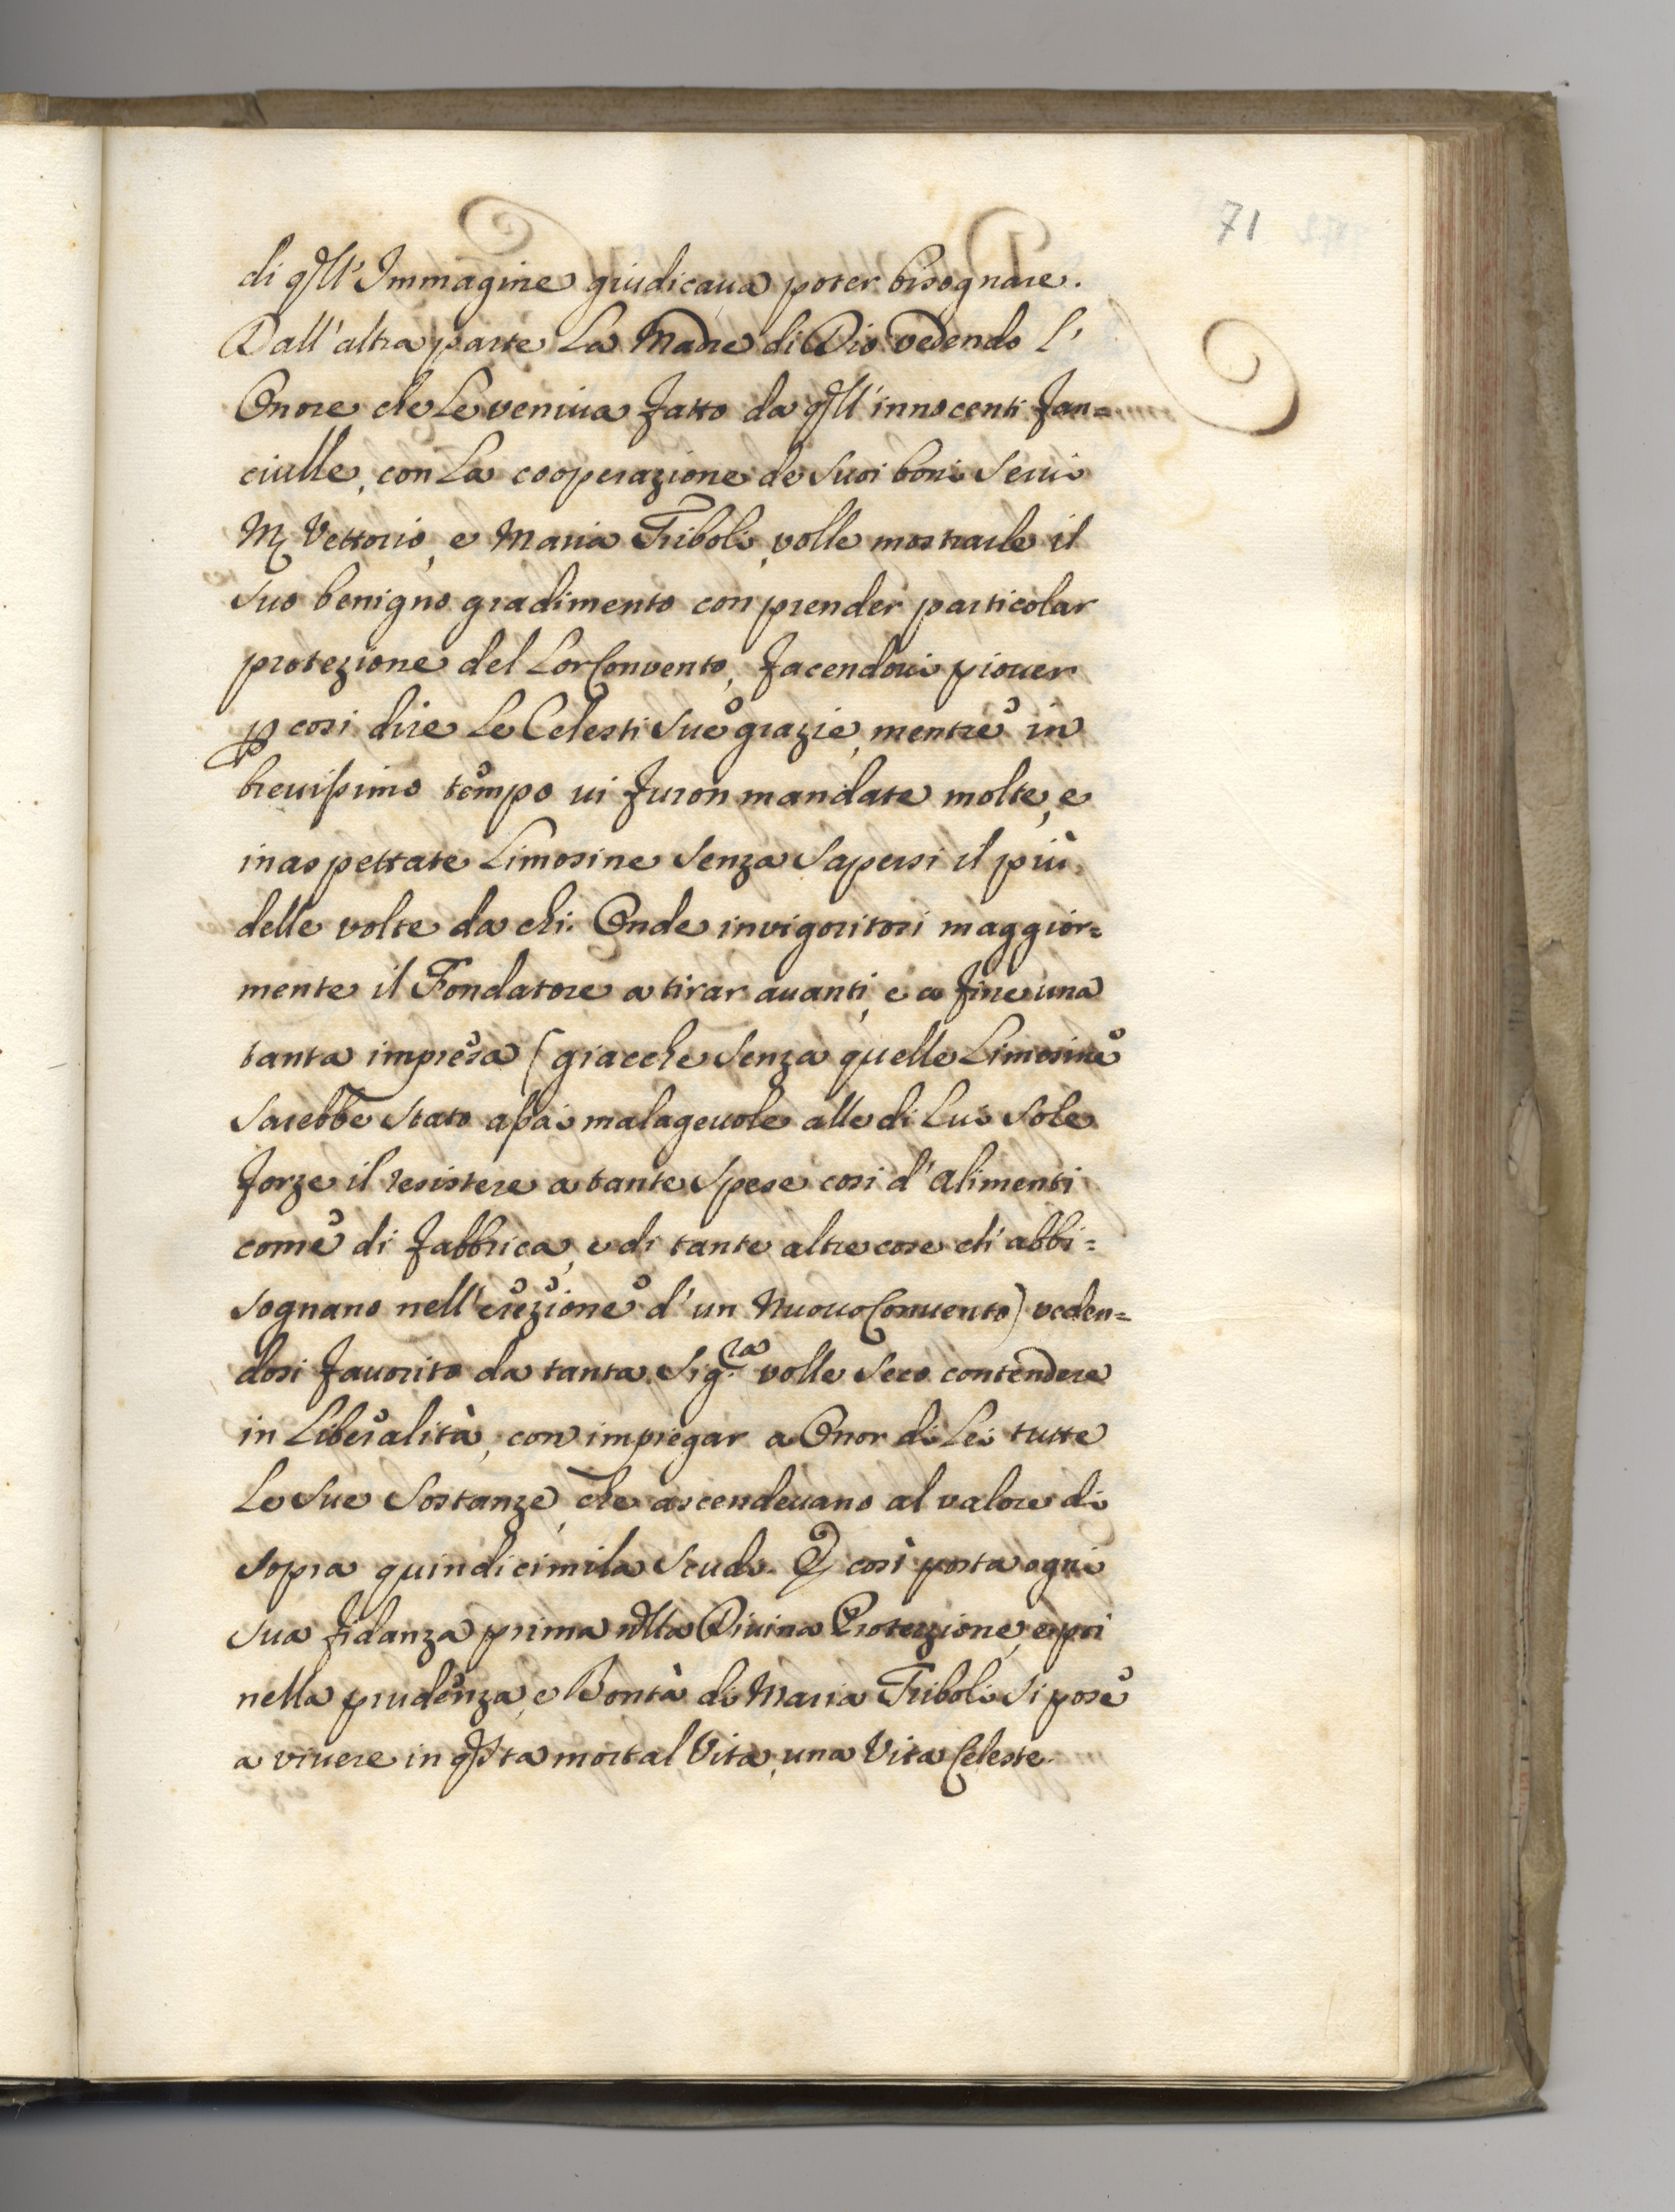 71
di qll' Immagine giudicaua poter bisognare.
Dall' altra parte La Madre di Dio vedendo L'
Onore che Le veniua fatto da qll' innocenti fan=
ciulle, con La cooperazione de Suoi boni Serui
M Vettorio, e Maria Triboli, volle mostrarle il
Suo benigno gradimento con prender particolar
protezione del Lor Convento, facendoui piouer
p cosi dire Le Celesti Sue grazie, mentre in
breuissimo tempo ui furon mandate molte, e
inaspettate Limosine Senza Sapersi il più
delle volte da chi. Onde invigoritosi maggior=
mente il Fondatore a tirar auanti, e a fine una
tanta impresa (giacche Senza quelle Limosine
Sarebbe Stato assai malageuole alle di Lui Sole
forze il resistere a tante Spese cosi d' Alimenti
come di fabbrica, e di tante altre cose ch' abbi=
sognano nell' erezione d' un Nuouo Conuento) veden=
dosi fauorito da tanta Sig.ra volle Seco contendere
in Liberalità, con impiegar a Onor di Lei tutte
Le Sue Sostanze, che ascendeuano al valore di
Sopra quindicimila Scudi. E così posta ogni
Sua fidanza prima nlla Diuina Protezzione, e poi
nella prudenza, e Bontà di Maria Triboli Si pose
a viuere in qsta mortal Vita, una Vita Celeste.